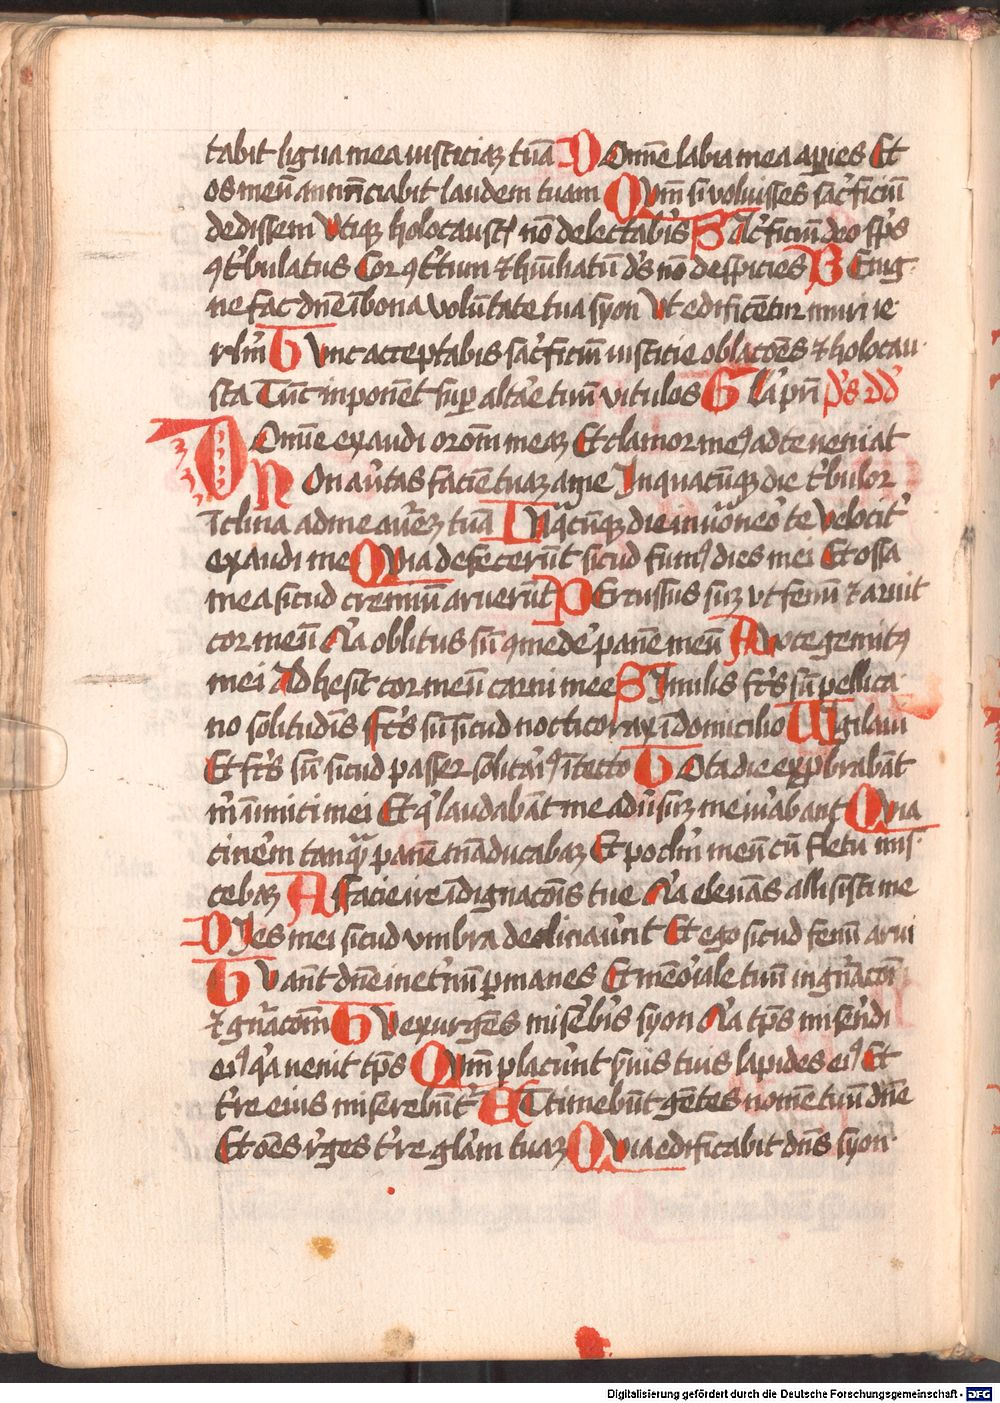 tabit ligua mea iusticiaꝫ tuā Domīe labia mea aperies Et
os meū annūciabit laudem tuam Qvm̄ si voluisses sac̓ficiū
dedissem vtiqꝫ holocaust nō delectab̓is Sac̓ficiū deo sp̄s
ꝯt̓bulatus Cor ꝯt̓tum ⁊ hūiliatū d̓s nō despicies BEnig·
ne fac dn̄e ī bona volūtate tua syon Vt edificēt̄ur muri ie·
rl̄m Tvnc acceptabis sac̓ficiū iusticie oblacōes ⁊ holocau·
sta Tūc inponēt sup̱ altāe tuū vitulos Gla̓ pr̄i p̓s dd̓
DOmīe exaudi orōm meaꝫ Et clamor meꝰ ad te veniat
NOn au̓tas faciē tuaꝫ a me In quacūqꝫ die t̓bulor
īclina ad me au̓eꝫ tuā In q̄cūqꝫ die inuo̓neo̓ te velocit̓
exaudi me Qvia defecerūt sicud fumꝰ dies mei Et ossa
mea sicud cremiuū aruerūt PErcussus suꝫ vt fenū ⁊ aruit
cor meū Qa oblitus sū ꝯmede̓ panē meū A voce gemitꝰ
mei Adhesit cor meū carni mee SImilis fc̄s sū pellica·
no solitudīs fc̄s sū sicud nocticorax ī domicilio Vigilaui
Et fc̄s sū sicud passer solitāiꝰ ī tecto Tota die exp̱brabāt
m̓ inimici mei Et q̓ laudabāt me adu̓suꝫ me iu̓abant Qvia
cinēm tanq̄ panē māducabaꝫ Et poclm̓ meū cū fletu mis·
cebaꝫ A facie ire īdignacōis tue Qa eleuās allisisti me
DIes mei sicud vmbra decliciauēūt Et ego sicud fenū arui
Tv aūt dn̄e inet̓nū p̱manes Et memo̓iale tuū in gn̓acōn
⁊ gn̓acōm Tv exurgēs mise̓b̓is syon Qa tp̄s misen̄di
eiꝰ q̓a venit tp̄s Qvm̄ placūnt s̓uis tuis lapides eiꝰ Et
t̓re eius miserebūt̓ ET timebūt gētes nomē tuū dn̄e
Et oēs r̓ges t̓re gl̓am tuaꝫ Qvia edificabit dn̄s syon·
Digitalisierung gefördert durch die Deutsche Forschungsgemeinschaft - DFG